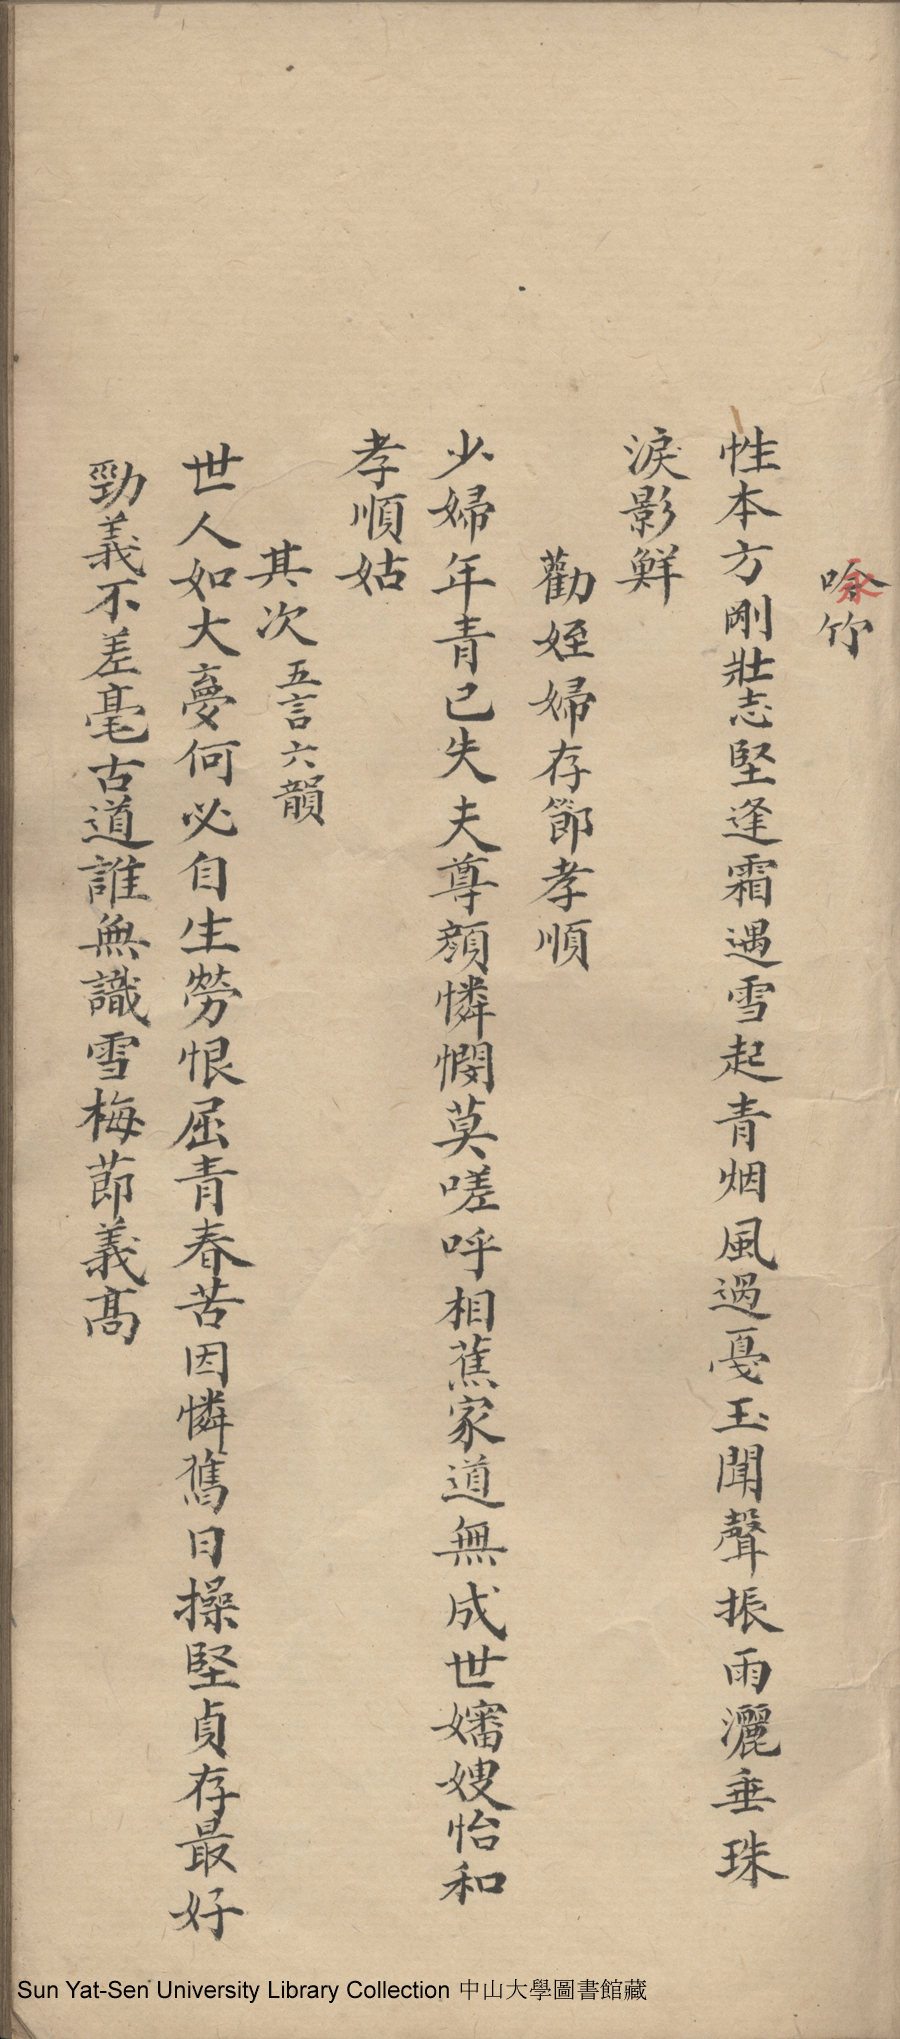 咏竹
性本方剛壯志堅逢霜遇雪起青烟風過戞玉聞聲振雨灑垂珠
淚影鮮
勸姪婦存節孝順
少婦年青已失夫尊顏憐憫莫嗟呼相蕉家道無成世嬸嫂怡和
孝順姑
其次五言六韻
世人如大夢何必自生勞恨屈青春苦因憐舊日操堅貞存最好
勁義不差毫古道誰無識雪梅節義高
Sun Yat-Sen University Library Collection 中山大學圖書館藏